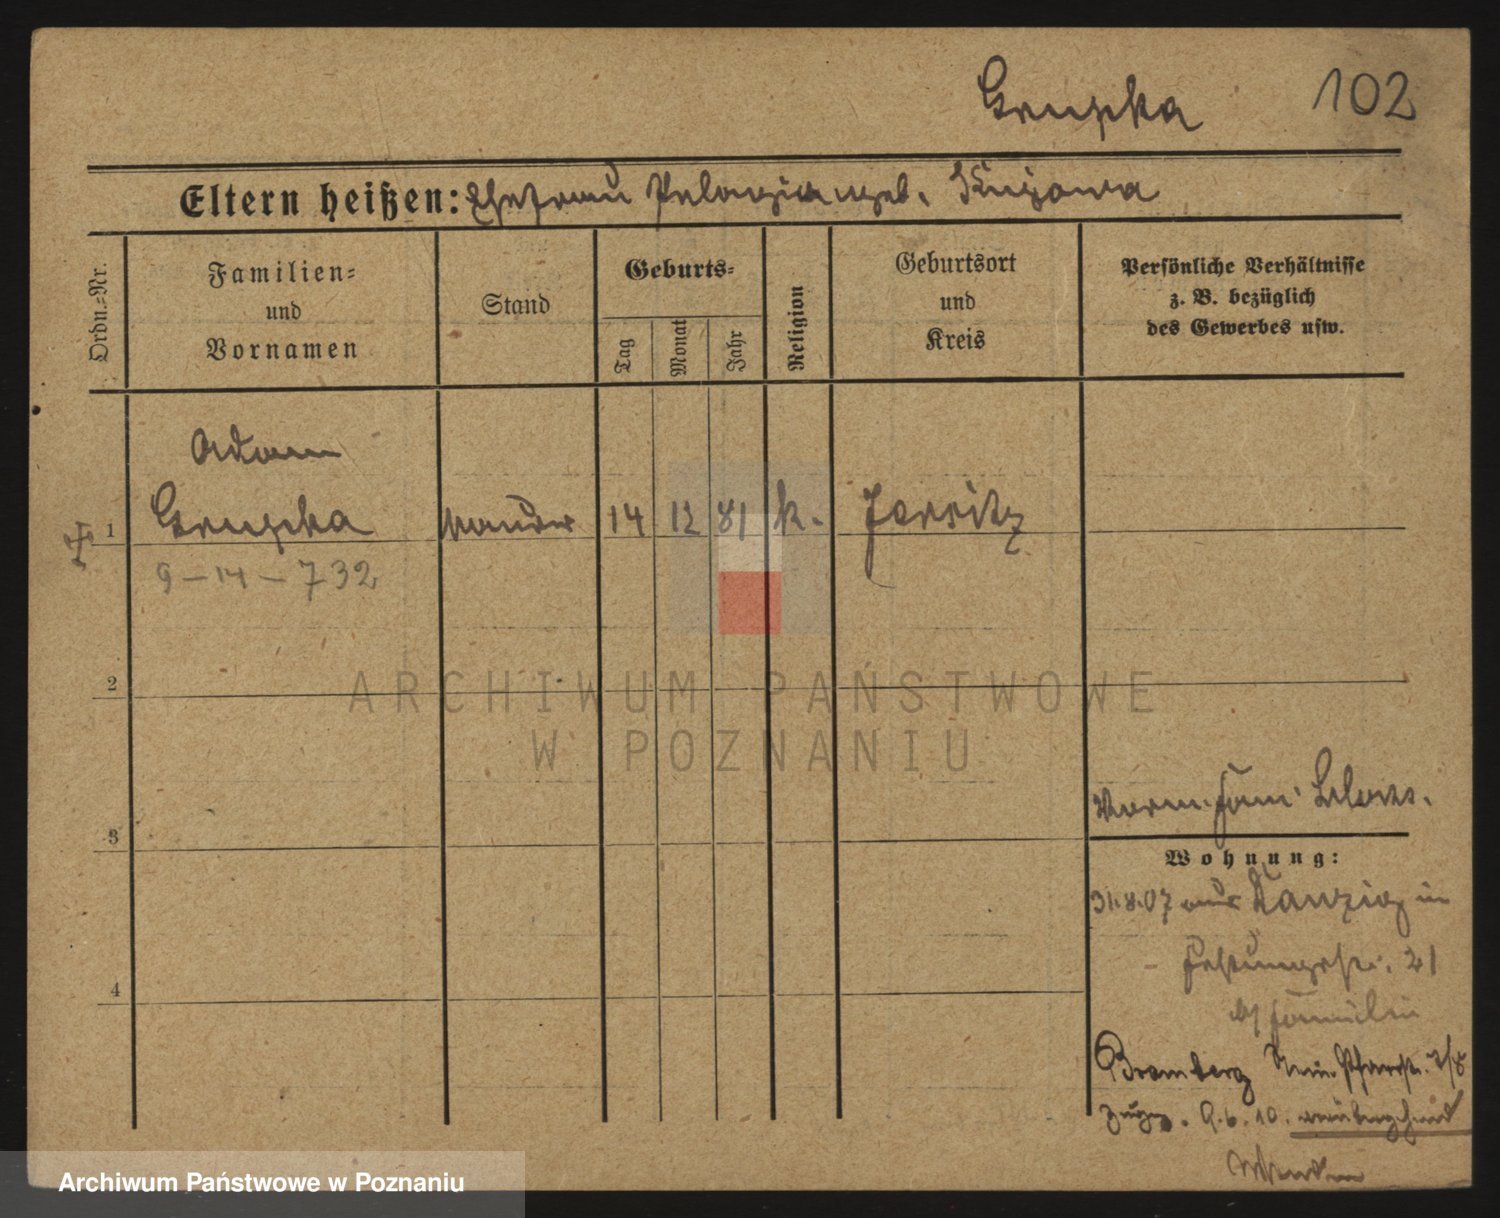 Grupka 102
Eltern heißen: Ehefrau Pelagia geb. Kujawa
Ordn.-Nr.
Familien-
und
Vornamen
Stand
Geburts-
Tag
Monat
Jahr
Religion
Geburtsort
und
Kreis
Persönliche Verhältnisse
z. B. bezüglich
des Gewerbes usw.
Adam
1 Grupka 14 12 81 k. Jersitz
9-14-732
2
ARCHIWUM PAŃSTWOWE
W POZNANIU
3
Wohnung:
31.8.07 aus Danzig in
Festungsstr. 21
Familie
4
Bromberg Neue Pfarrstr. 7/8
9.6.10.
Archiwum Państwowe w Poznaniu